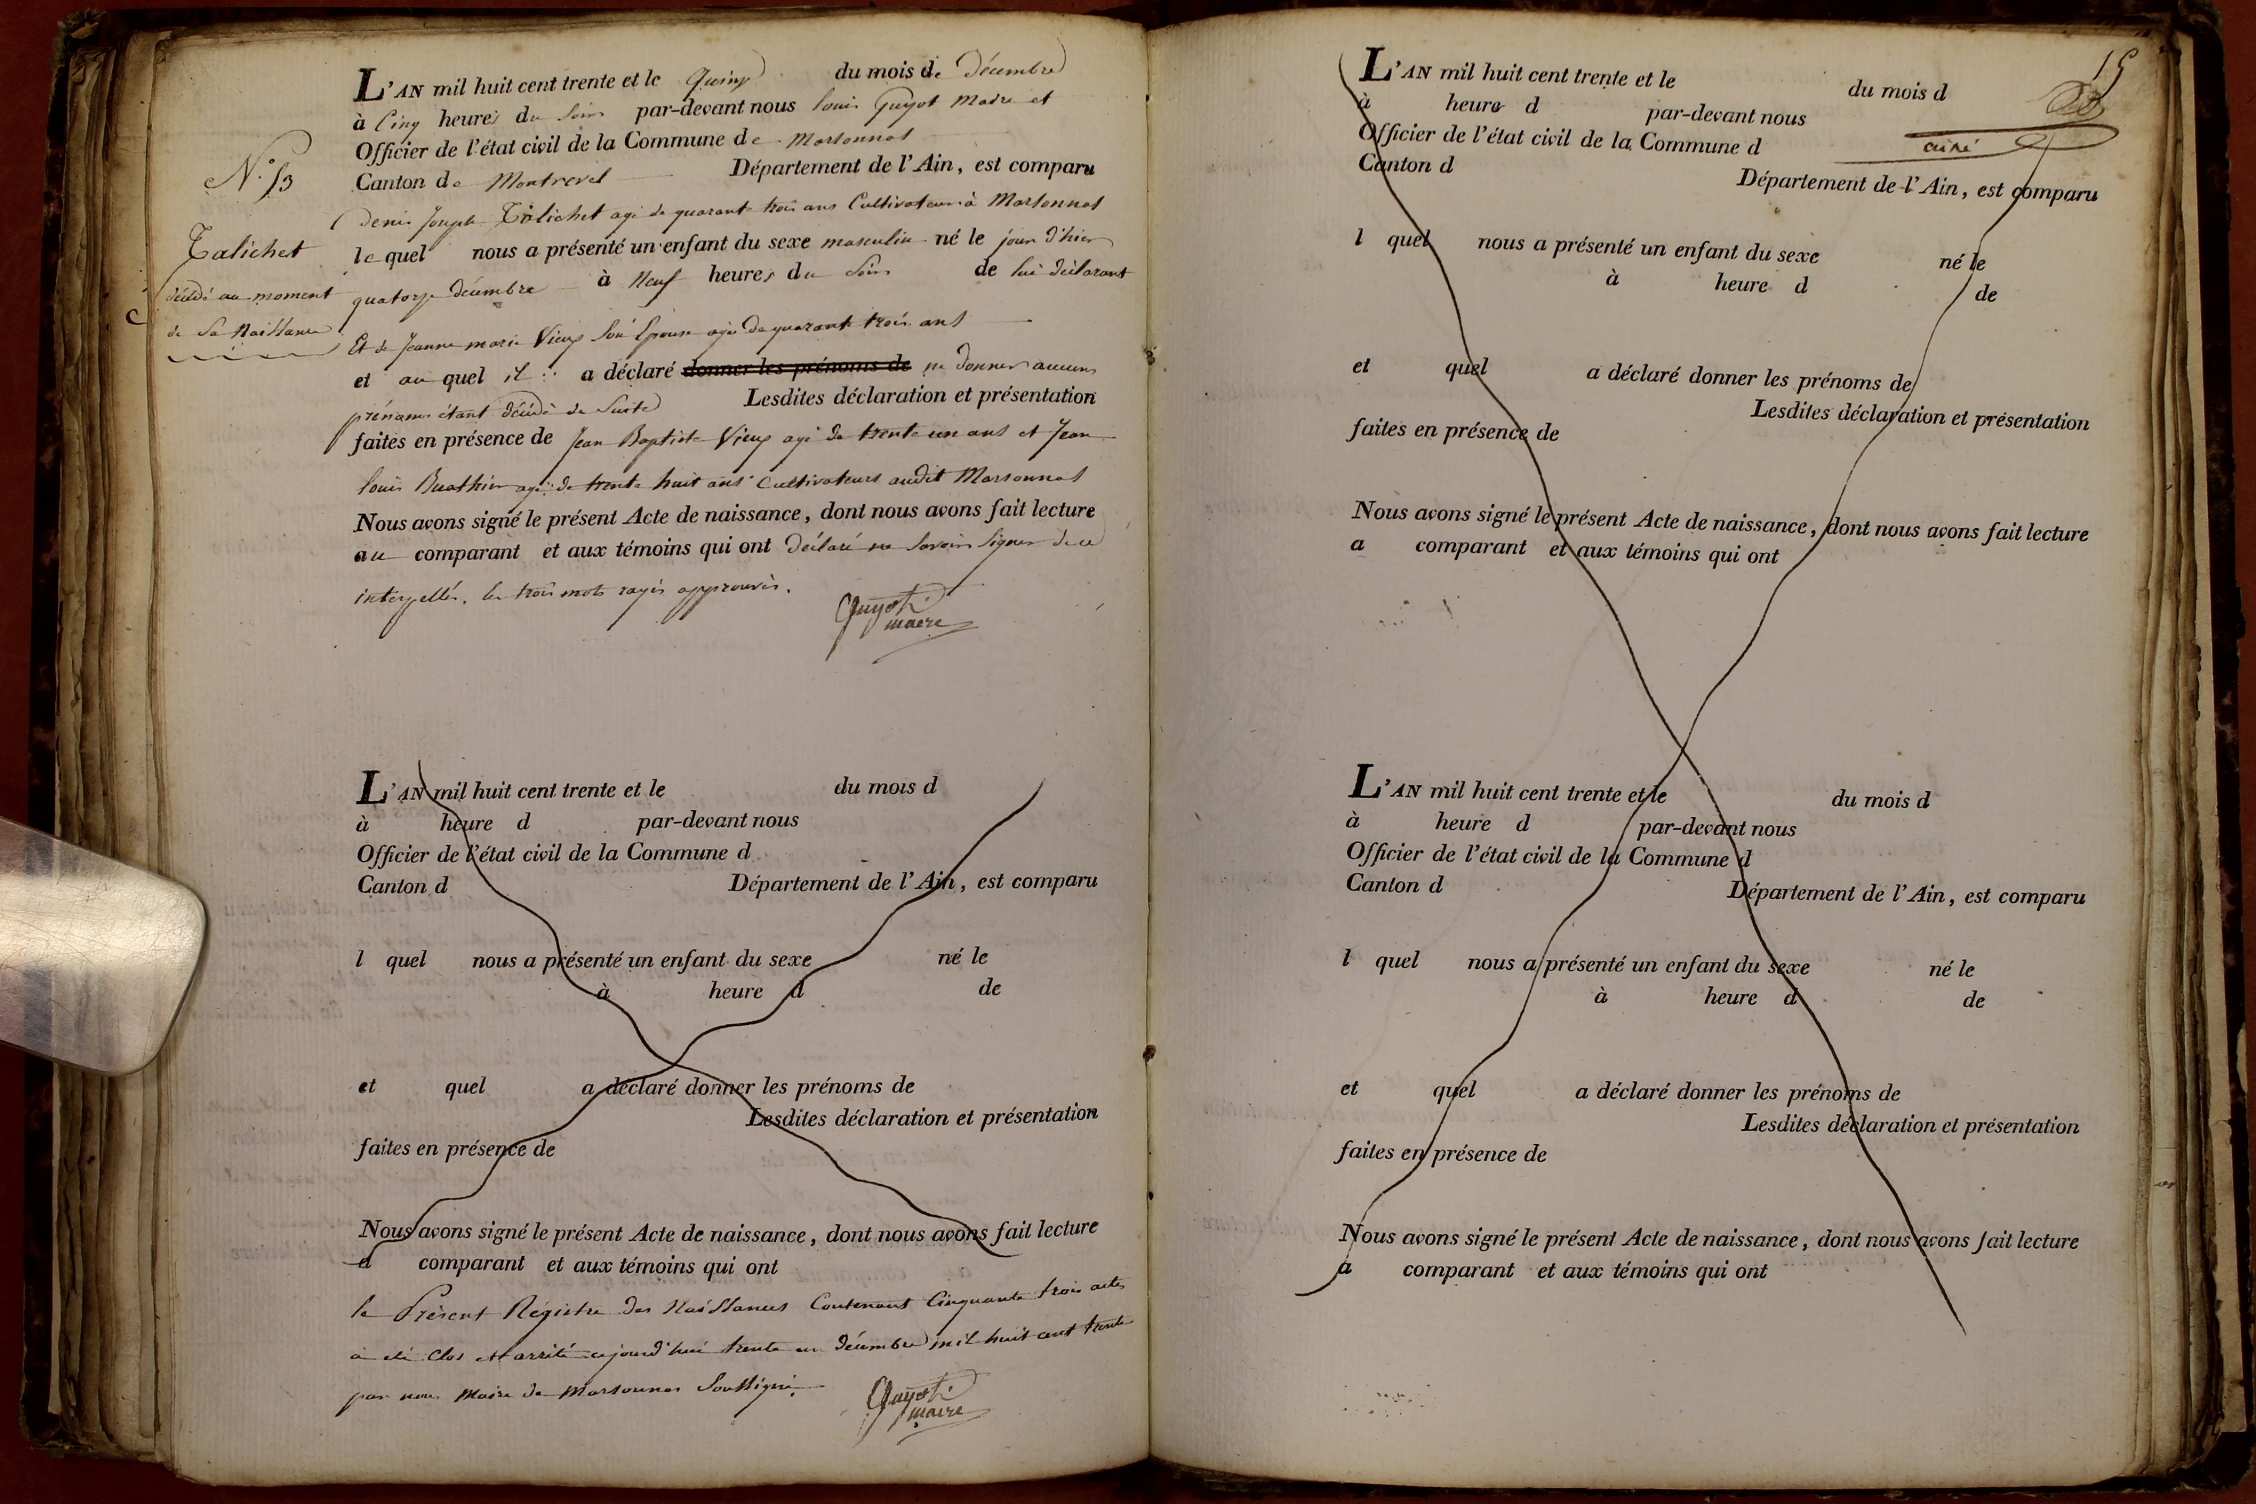 L'AN mil huit cent trente et le Quinze du mois de Décembre
à Cinq heures du Soir par-devant nous Louis Guyot Maire et
Officier de l'état civil de la Commune de Marsonnas
Canton de Montrevel Département de l'Ain, est comparu
Denis Joseph Talichet agé de quarante trois ans Cultivateur à Marsonnas
lequel nous a présenté un enfant du sexe masculin né le jour d'hier
quatorze décembre à Neuf heures du Soir de lui déclarant
Et de Jeanne marie Vieux Son Epouse agée de quarante trois ans
et auquel il a déclaré donner les prénoms de ne donner aucuns
prénoms étant décédé de Suite Lesdites déclaration et présentation
faites en présence de Jean Baptiste Vieux agé de trente un ans et Jean
louis Buathier agé de trente huit ans Cultivateurs audit Marsonnas
Nous avons signé le présent Acte de naissance, dont nous avons fait lecture
au comparant et aux témoins qui ont déclaré ne Savoir Signer de ce
interpellés. les trois mots rayés approuvés.
Guyot
maire
N.° 53
Talichet
décédé au moment
de Sa Naissance
L'AN mil huit cent trente et le du mois d
à heure d par-devant nous
Officier de l'état civil de la Commune d
Canton d Département de l'Ain, est comparu
l quel nous a présenté un enfant du sexe né le
à heure d de
et quel a déclaré donner les prénoms de
Lesdites déclaration et présentation
faites en présence de
Nous avons signé le présent Acte de naissance, dont nous avons fait lecture
a comparant et aux témoins qui ont
le Présent Régistre des Naissances Contenant Cinquante trois actes
a été Clos et arrêté cejourd'hui trente un décembre mil huit cent trente
par nous Maire de Marsonnas Soussigné
Guyot
maire
15
L'AN mil huit cent trente et le du mois d
à heure d par-devant nous
Officier de l'état civil de la Commune d
Canton d Département de l'Ain, est comparu
l quel nous a présenté un enfant du sexe né le
à heure d de
et quel a déclaré donner les prénoms de
Lesdites déclaration et présentation
faites en présence de
Nous avons signé le présent Acte de naissance, dont nous avons fait lecture
a comparant et aux témoins qui ont
L'AN mil huit cent trente et le du mois d
à heure d par-devant nous
Officier de l'état civil de la Commune d
Canton d Département de l'Ain, est comparu
l quel nous a présenté un enfant du sexe né le
à heure d de
et quel a déclaré donner les prénoms de
Lesdites déclaration et présentation
faites en présence de
Nous avons signé le présent Acte de naissance, dont nous avons fait lecture
a comparant et aux témoins qui ont